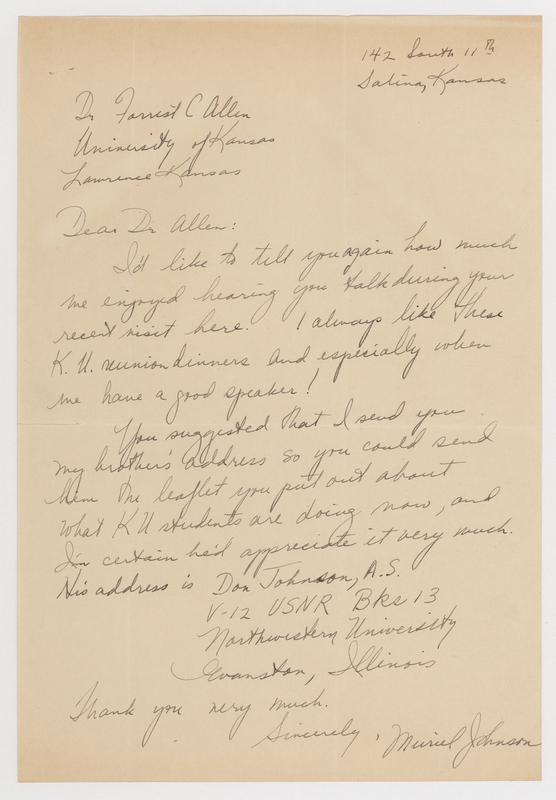 142 South 11th
Salina, Kansas
Dr Forrest C Allen
University of Kansas
Lawrence Kansas
Dear Dr Allen:
I'd like to tell you again how much
we enjoyed hearing you talk during your
recent visit here. I always like these
K. U. reunion dinners and especially when
we have a good speaker!
You suggested that I send you
my brother's address so you could send
him the leaflet you put out about
what K U students are doing now, and
I'm certain he'd appreciate it very much.
His address is Don Johnson, A.S.
V-12 USNR Bks 13
Northwestern University
Evanston, Illinois
Thank you very much.
Sincerely, Muriel Johnson